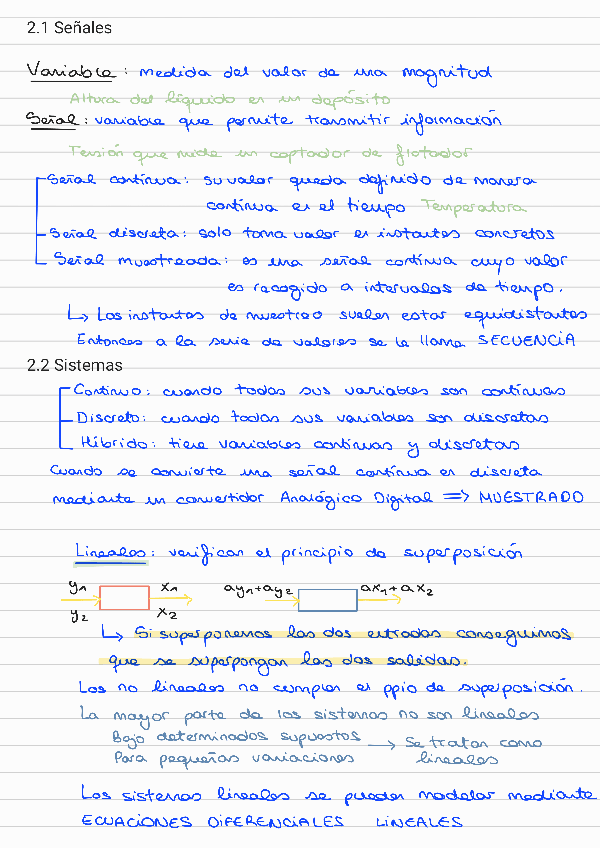 2.1 Señales
Variable: medida del valor de una magnitud
Altura del líquido en un depósito
Señal: variable que permite transmitir información
Tensión que mide un captador de flotador
Señal continua: su valor queda definido de manera
continua en el tiempo Temperatura
Señal discreta: solo toma valor en instantes concretos
Señal muestreada: es una señal continua cuyo valor
es recogido a intervalos de tiempo.
↳ Los instantes de muestreo suelen estar equidistantes
Entonces a la serie de valores se le llama SECUENCIA
2.2 Sistemas
Continuo: cuando todas sus variables son continuas
Discreto: cuando todas sus variables son discretas
Híbrido: tiene variables continuas y discretas
Cuando se convierte una señal continua en discreta
mediante un convertidor Analógico Digital => MUESTRADO
Lineales: verifican el principio de superposición
y1 x1 ay1+ay2 ax1+ax2
y2 x2
↳ Si superponemos las dos entradas conseguimos
que se superpongan las dos salidas.
Los no lineales no cumplen el ppio de superposición.
La mayor parte de los sistemas no son lineales
Bajo determinados supuestos → Se tratan como
Para pequeñas variaciones lineales
Los sistemas lineales se pueden modelar mediante
ECUACIONES DIFERENCIALES LINEALES